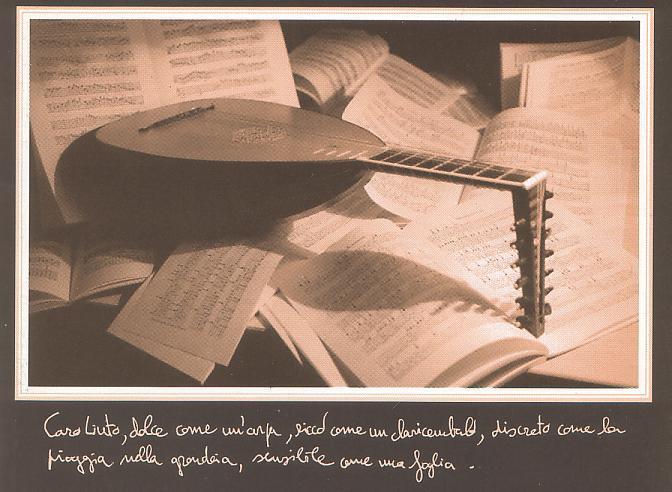 Caro liuto, dolce come un'arpa, ricco come un clavicembalo, discreto come la
pioggia nella grondaia, sensibile come una foglia.